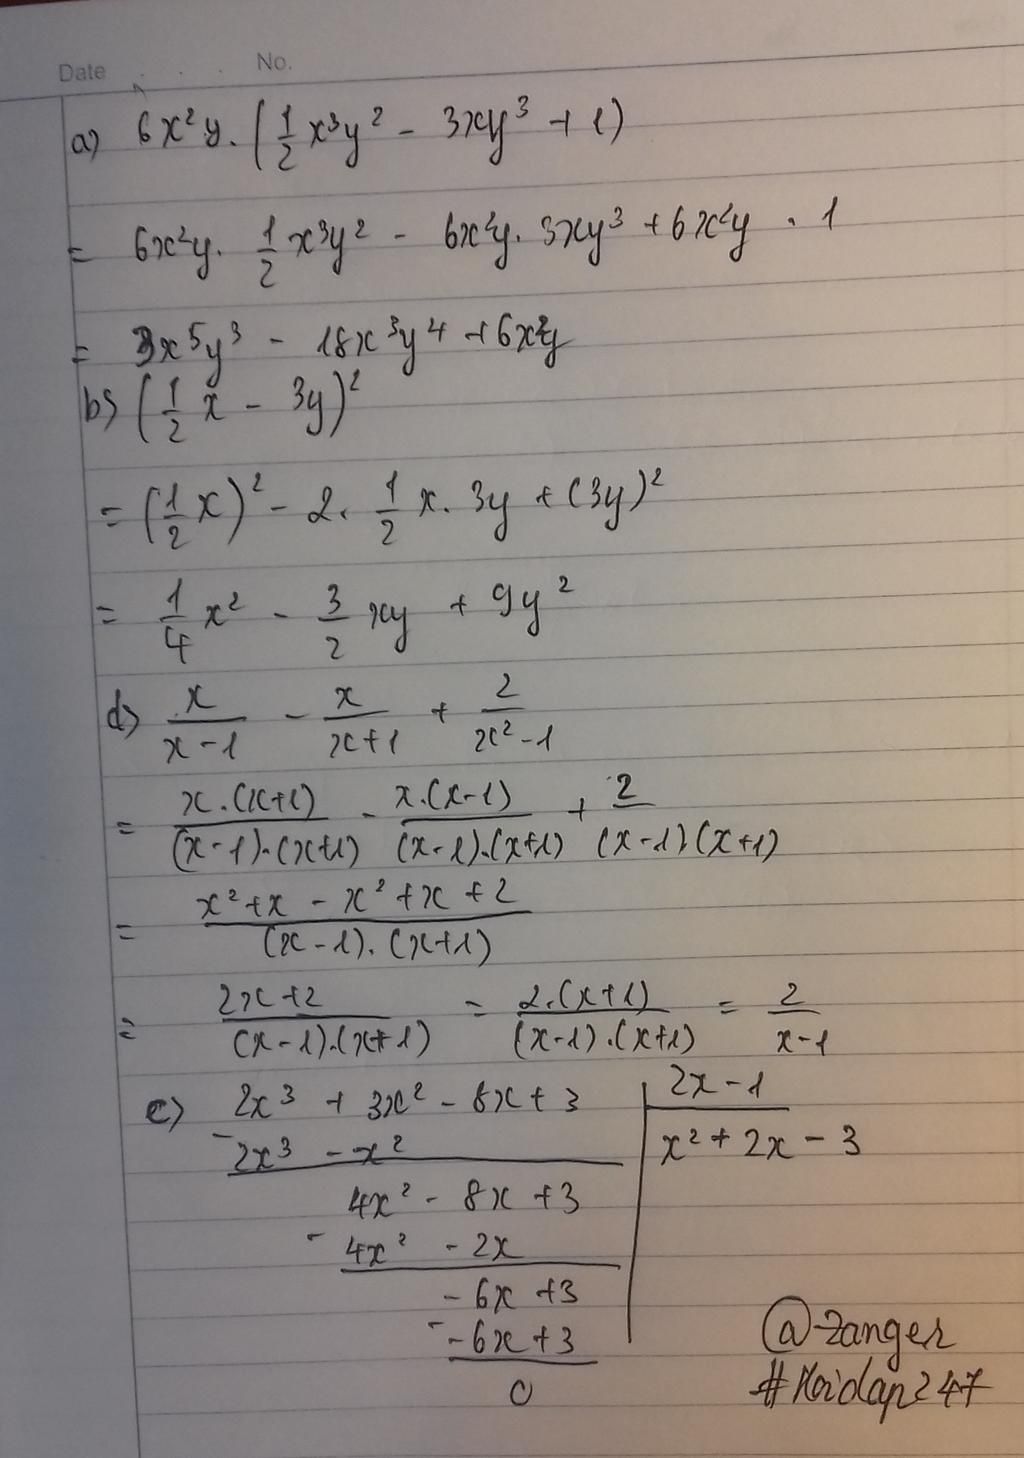 Date . . . No.
a) 6x²y.(1/2 x³y² - 3xy³ + 1)
= 6x²y. 1/2 x³y² - 6x²y. 3xy³ + 6x²y . 1
= 3x⁵y³ - 18x³y⁴ + 6x²y
b) (1/2 x - 3y)²
= (1/2 x)² - 2. 1/2 x. 3y + (3y)²
= 1/4 x² - 3/2 xy + 9y²
d) x/(x-1) - x/(x+1) + 2/(x²-1)
= x.(x+1)/(x-1).(x+1) - x.(x-1)/(x-1).(x+1) + 2/(x-1)(x+1)
= x²+x - x²+x+2/(x-1).(x+1)
= 2x+2/(x-1).(x+1) = 2.(x+1)/(x-1).(x+1) = 2/(x-1)
c) 2x³ + 3x² - 8x + 3 | 2x - 1
- 2x³ - x² | x² + 2x - 3
4x² - 8x + 3
- 4x² - 2x
- 6x + 3
- - 6x + 3
0
@zanger
#Hoidap247